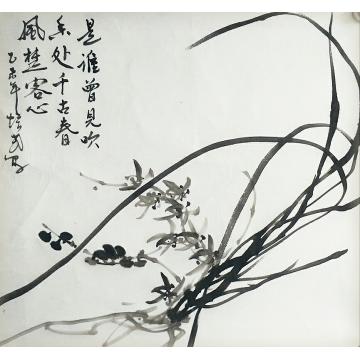 是谁曾见吹
香处千古春
风楚客心
乙未年